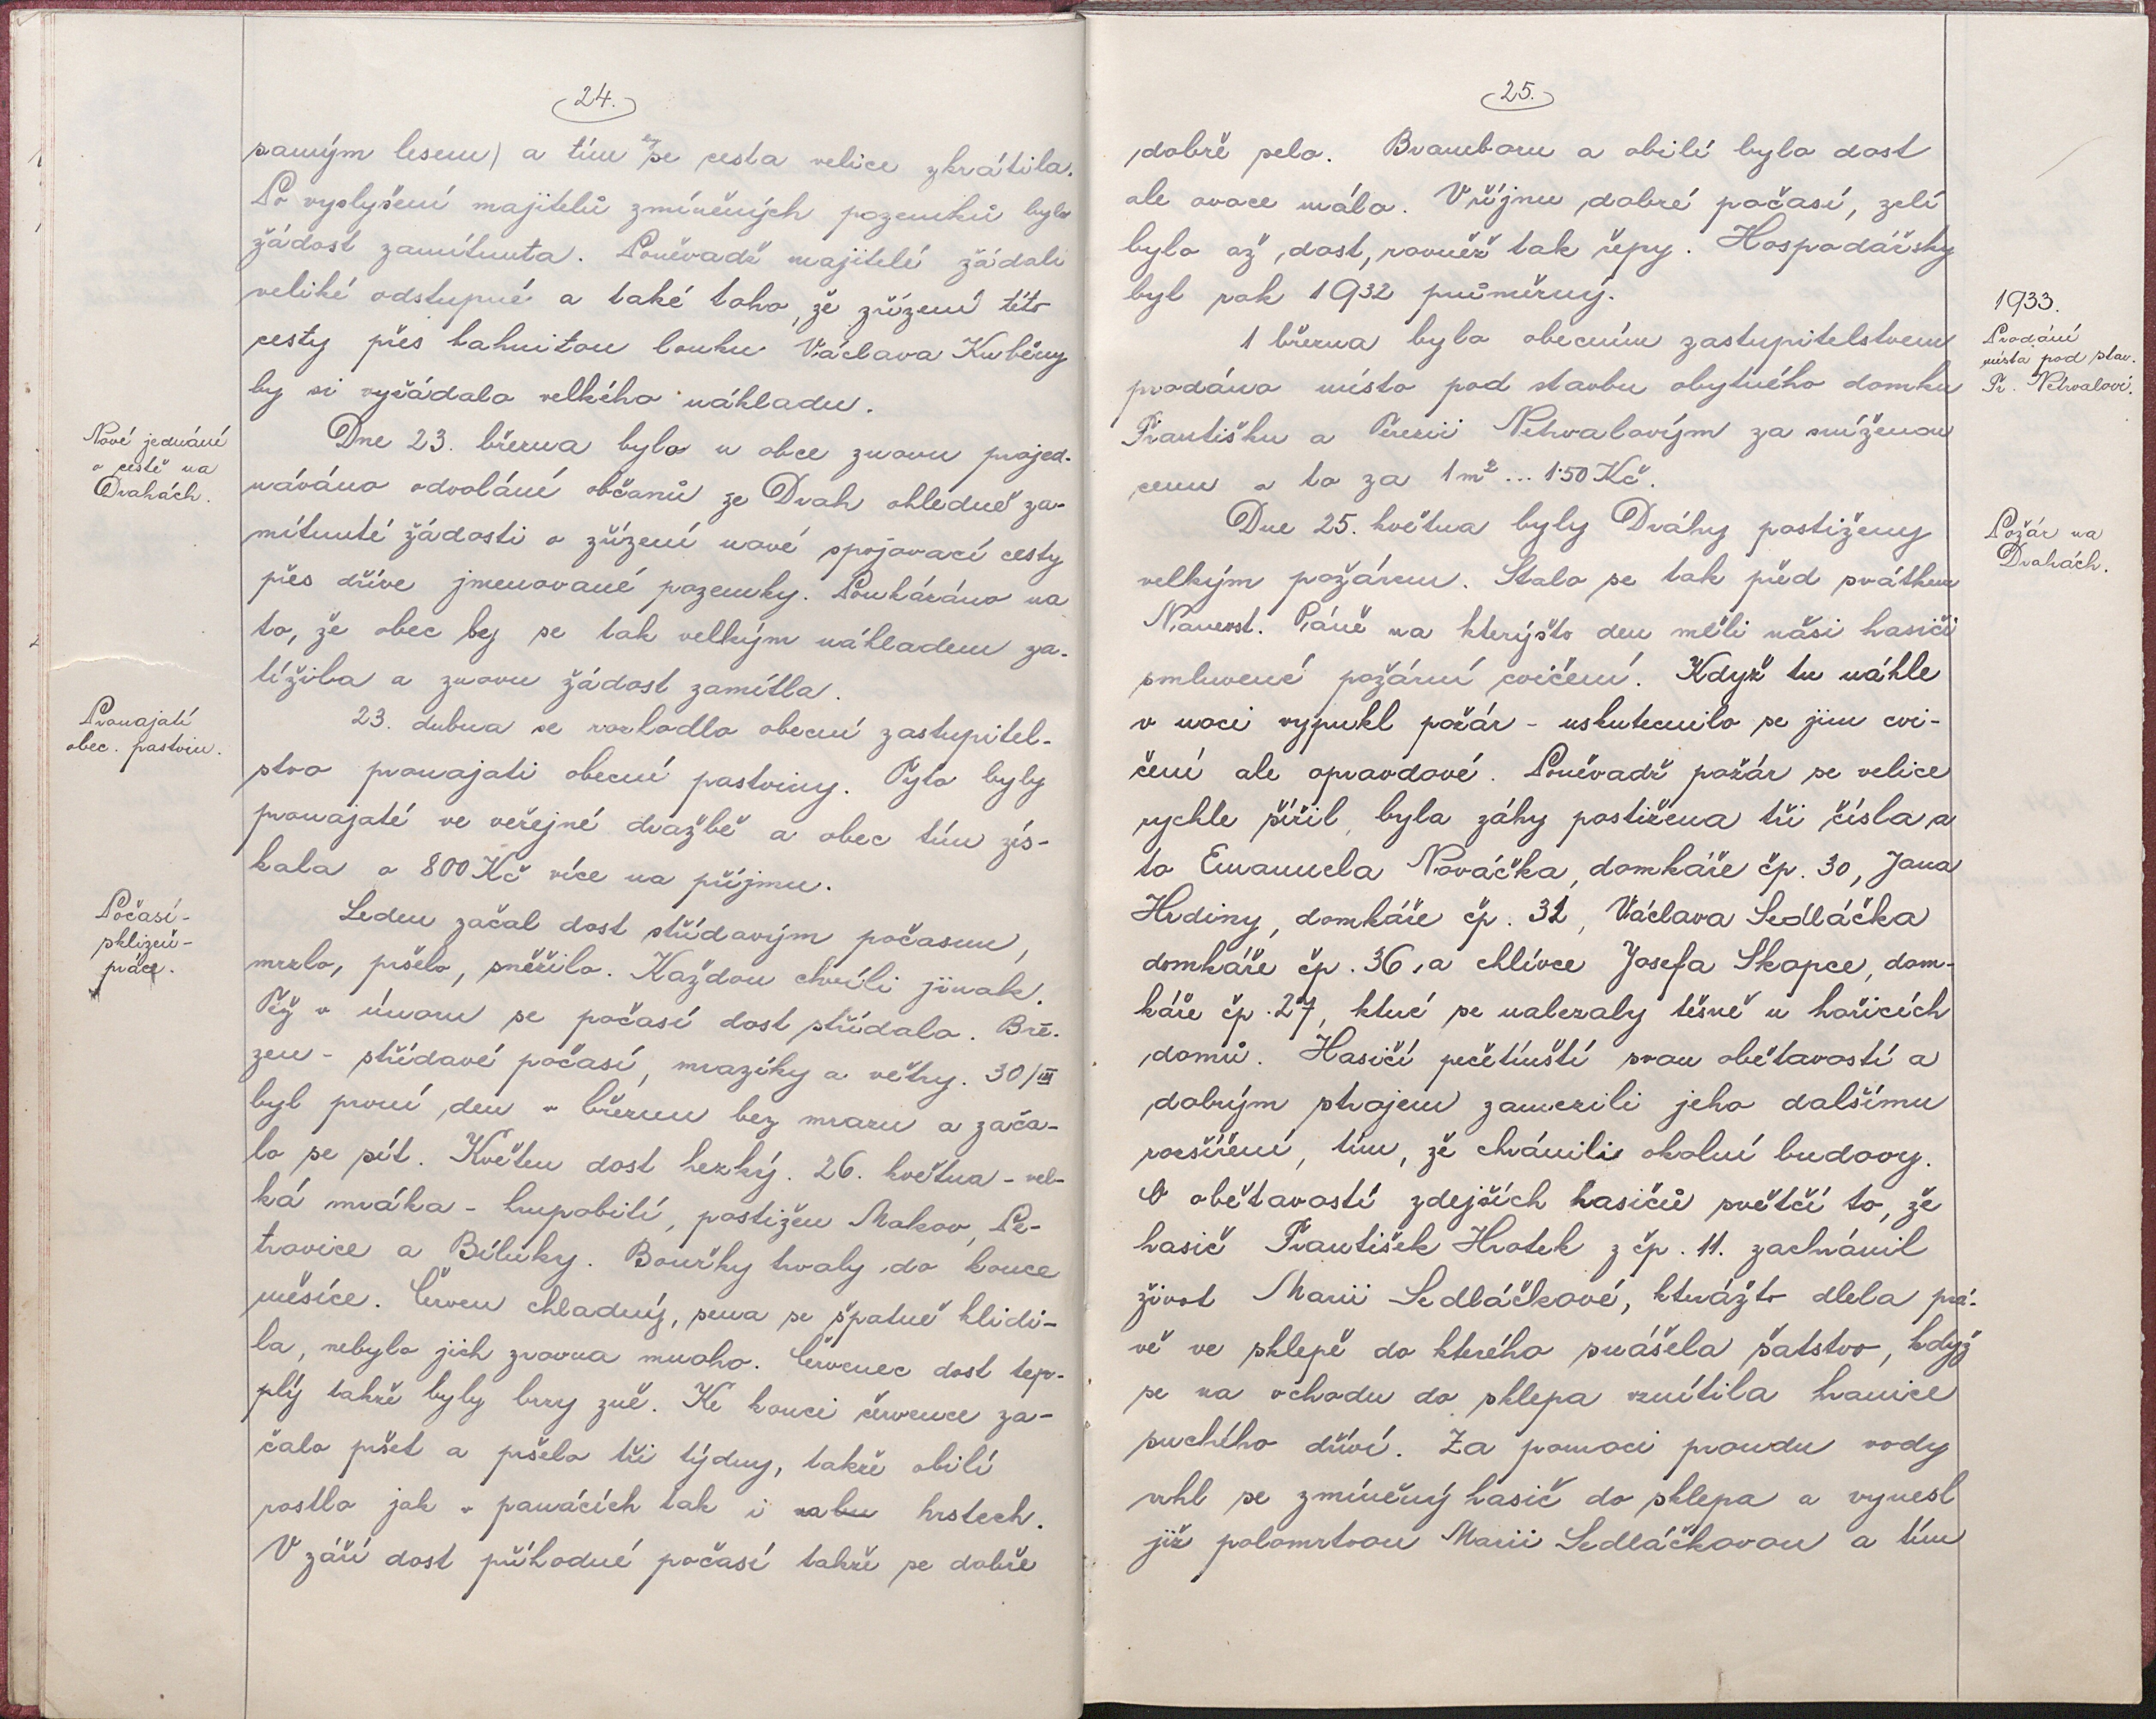 24.
samým lesem) a tím by se cesta velice zkrátila.
Po vyslyšení majitelů zmíněných pozemků byla
žádost zamítnuta. Poněvadž majitelé žádali
veliké odstupné a také toho, že zřízení této
cesty přes bahnitou louku Václava Kuběny
by si vyžádalo velkého nákladu.
Nové jednání
o cestě na
Drahách.
Dne 23. března bylo u obce znovu projed-
náváno odvolání občanů ze Drah ohledně za-
mítnuté žádosti o zřízení nové spojovací cesty
přes dříve jmenované pozemky. Poukázáno na
to, že obec by se tak velkým nákladem za-
tížila a znovu žádost zamítla.
Pronajatí
obec. pastvin.
23. dubna se rozhodlo obecní zastupitel-
stvo pronajati obecní pastviny. Tyto byly
pronajaté ve veřejné dražbě a obec tím zís-
kala o 800 Kč více na příjmu.
Počasí-
sklizeň-
práce.
Leden začal dost střídavým počasím,
mrzlo, pršelo, sněžilo. Každou chvíli jinak.
Též v únoru se počasí dost střídalo. Bře-
zen - střídavé počasí, mrazíky a větry. 30/III
byl první den v březnu bez mrazu a zača-
lo se sít. Květen dost hezký. 26. května - vel-
ká mráka - krupobití, postižen Makov, Pe-
travice a Bílinky. Bouřky trvaly do konce
měsíce. Červen chladný, sena se špatně klidi-
la, nebylo jich zrovna mnoho. Červenec dost tep-
plý takže byly brzy žně. Ke konci července za-
čalo pršet a pršelo tři týdny, takže obilí
rostlo jak v panácích tak i hrstech.
V září dost příhodné počasí takže se dobře
25.
dobře selo. Bramboru a obilí bylo dost
ale ovoce málo. V říjnu dobré počasí, zelí
bylo až dost, rovněž tak řepy. Hospodářsky
byl rok 1932 průměrný.
1933.
Prodání
místa pod stav.
Fr. Netrvalovi.
1 března bylo obecním zastupitelstvem
prodáno místo pod stavbu obytného domku
Františku a Terezii Netrvalovým za sníženou
cenu a to za 1 m² ... 1·50 Kč.
Požár na
Drahách.
Dne 25. května byly Dráhy postiženy
velkým požárem. Stalo se tak před svátkem
Nanevst. Páně na kterýžto den měli naši hasiči
smluvené požární cvičení. Když tu náhle
v noci vypukl požár - uskutecnilo se jim cvi-
čení ale opravdové. Poněvadž požár se velice
rychle šířil, byla záhy postižena tři čísla a
to Emanuela Nováčka, domkáře čp. 30, Jana
Hrdiny, domkáře čp. 31, Václava Sedláčka
domkáře čp. 36, a chlívce Josefa Skopce, dom-
káře čp. 27, které se nalezaly těsně u hořících
domů. Hasičí pečetínští svou obětavostí a
dobrým strojem zamezili jeho dalšímu
rozšíření, tím, že chránili okolní budovy.
O obětavostí zdejších hasičů světčí to, že
hasič František Hrotek z čp. 11. zachránil
život Marii Sedláčkové, kterážto dlela prá-
vě ve sklepě do kterého snášela šatstvo, když
se na vchodu do sklepa vznítila hranice
suchého dříví. Za pomoci proudu vody
vrhl se zmíněný hasič do sklepa a vynesl
již polomrtvou Marii Sedláčkovou a tím